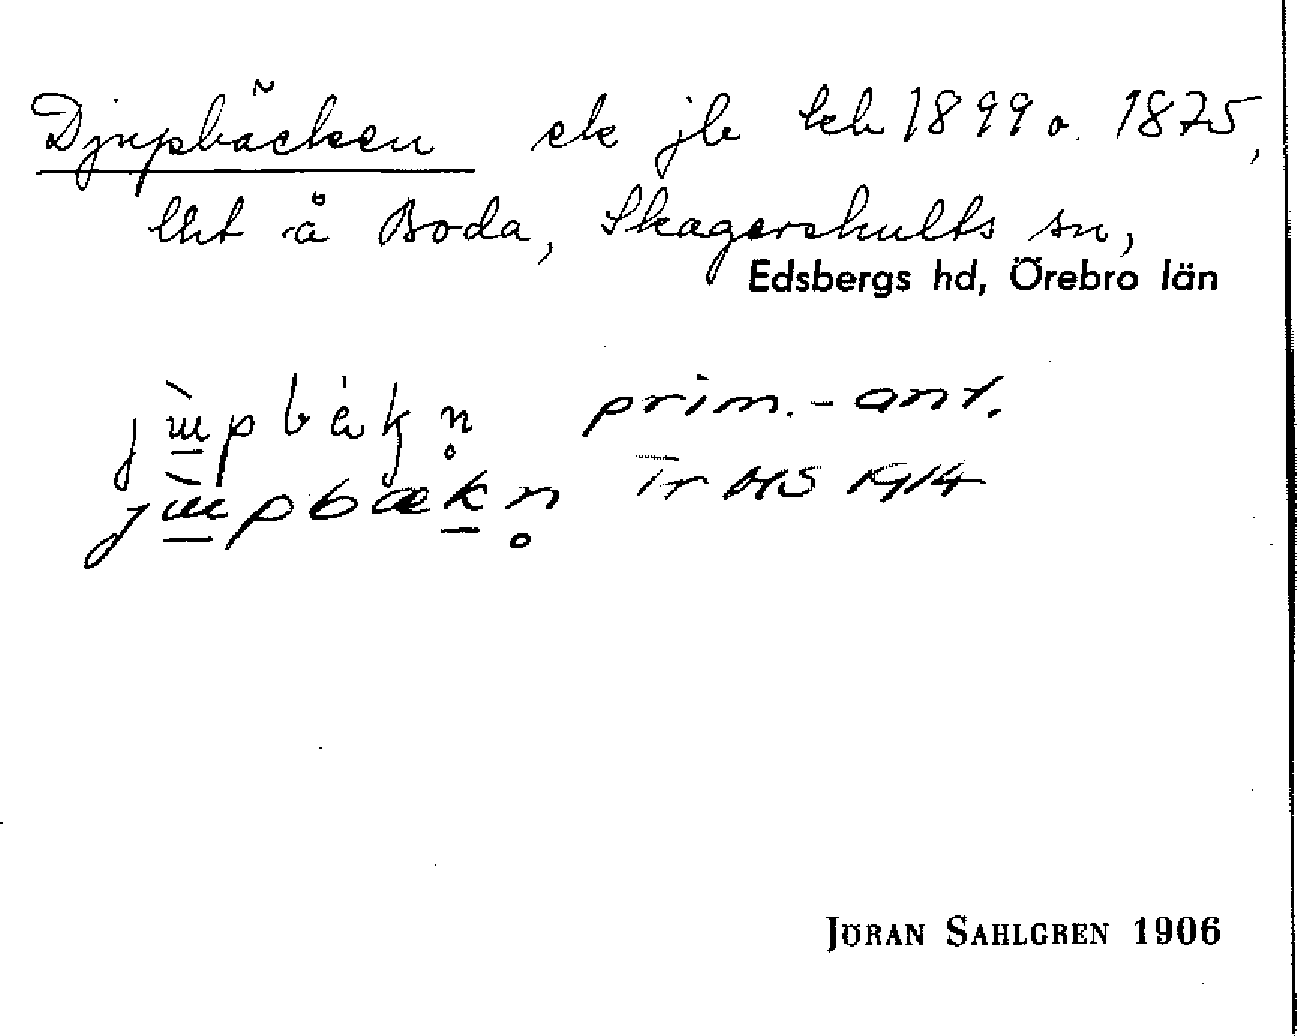 Djupbäcken ek jb kch 1899 o. 1875,
lht å Boda, Skagershults sn,
Edsbergs hd, Örebro län
prim.-ant.
Tr HS 1914
JÖRAN SAHLGREN 1906